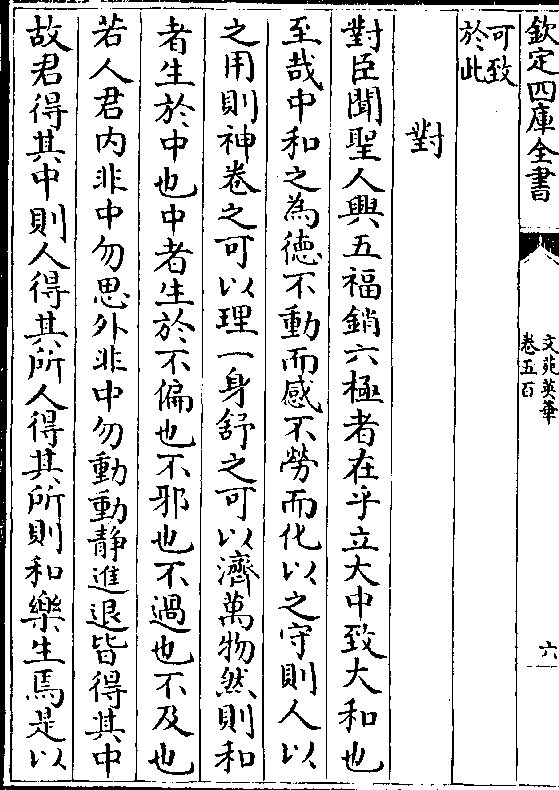 欽定四庫全書
文苑英華
卷五百
六
可致
於此
對
對臣聞聖人興五福銷六極者在乎立大中致大和也
至哉中和之為德不動而感不勞而化以之守則人以
之用則神卷之可以理一身舒之可以濟萬物然則和
者生於中也中者生於不偏也不邪也不過也不及也
若人君内非中勿思外非中勿動動靜進退皆得其中
故君得其中則人得其所人得其所則和樂生焉是以